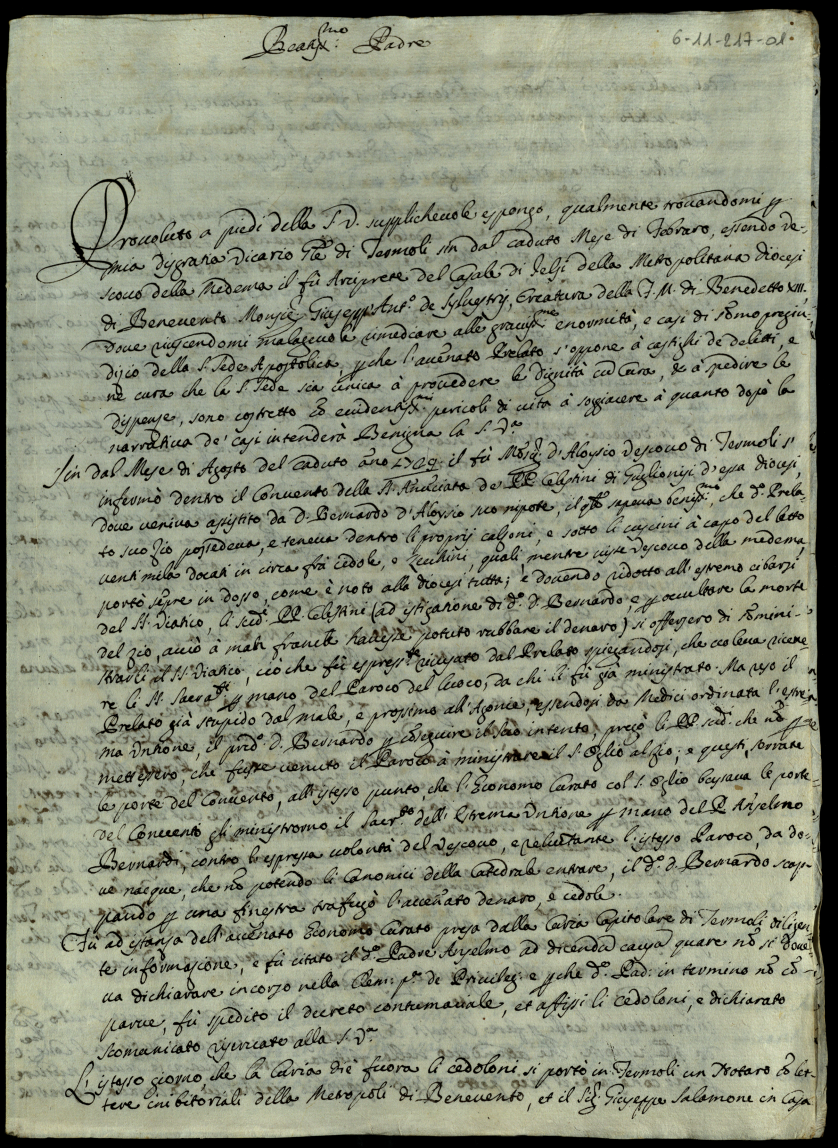 Beatiss:mo Padre
6-11-217-01
Provoluto a piedi della S.V. supplichevole espongo, qualmente trovandomi p
mia disgrazia Vicario Gñle di Termoli sin dal caduto Mese di Febraro, essendo Ve-
scovo della Medema il fù Arciprete del Casale di Jelsi della Metropolitana Diocesi
di Benevento Monsig.r Giuseppe Ant.o de Sylvestry, Creatura della F.M. di Benedetto XIII.
dove riuscendomi malagevole rimedicare alle gravissime enormità, e casi di sommo pregiu-
dizio della S. Sede Apostolica, p che l'accenato Prelato s'oppone à castighi de delitti, e
ne cura che la S. Sede sia unica à provedere le Dignità cum Cura, & à spedire le
dispense, sono costretto co evidentiss:mi pericoli di vita à soggiacere à quanto dopò la
narrativa de' casi intenderà Benigna la S.V.a
Sin dal Mese di Agosto del caduto año 1729: il fù Mons.r d'Aloysio Vescovo di Termoli s'
infermò dentro il Convento della SS. Anunciata de PP. Celestini di Guglionisi d'essa diocesi,
dove veniva assistito da D. Bernardo d'Aloysio suo nipote, il qle sapeva beniss.mo, che d.o Prela-
to suo Zio possedeva, e teneva dentro li proprij calzoni, e sotto li cuscini à capo del letto
venti mila docati in circa frà cedole, e Zecchini, quali, mentre visse Vescovo della medema,
portò sepre in dosso, come è noto alla diocesi tutta; e dovendo ridotto all'estremo cibarsi
del SS. Viatico, li sud.i PP. Celestini (ad istigazione di d.o D. Bernardo e p occultare la morte
del zio, acciò à man franche havesse potuto rubbare il denaro) si offersero di somini-
strarli il SS. Viatico, ciò che fù express.te ricusato dal Prelato spiegandosi, che voleva riceve-
re li SS. Sacra.ti p mano del Paroco del luoco, da chi li fù già ministrato. Ma reso il
Prelato già stupido dal male, e prossimo all'Agonia, essendosi da Medici ordinata l'estre-
ma Untione, il pred.o D. Bernardo p conseguire il suo intento, pregò li PP. sud.i che nõ p-
mettessero, che fusse venuto il Paroco à ministrare il S. Oglio al zio; e questi, serrate
le porte del Convento, all'istesso punto che l'Economo Curato col S. Oglio bussava le porte
del Convento gli ministrorno il Sacr.to dell'Estrema Untione p mano del P. Anselmo
Bernardi, contro l'espressa volontà del Vescovo, e reluttante l'istesso Paroco, da do-
ve nacque, che nõ potendo li Canonici della Catedrale entrare, il d.o D. Bernardo scap-
pando p una finestra trafugò l'accenato denaro, e cedole.
Fù ad istanza dell'accenato Economo Curato presa dalla Curia Capitolare di Termoli diligen-
te informazione, e fù citato il d.o Padre Anselmo ad dicendũ causã quare nõ si dove-
va dichiarare incorzo nella Clem: p.a de Privileg: e p che d.o Pad: in termino nõ co-
parve, fù spedito il decreto contumaciale, et affissi li cedoloni, e dichiarato
scomunicato riservato alla S.V.a
L'istesso giorno, che la Curia diè fuora li cedoloni si portò in Termoli un Notaro co let-
tere inibitoriali della Metropoli di Benevento, et il Sig.r Giuseppe Salamone in Casa